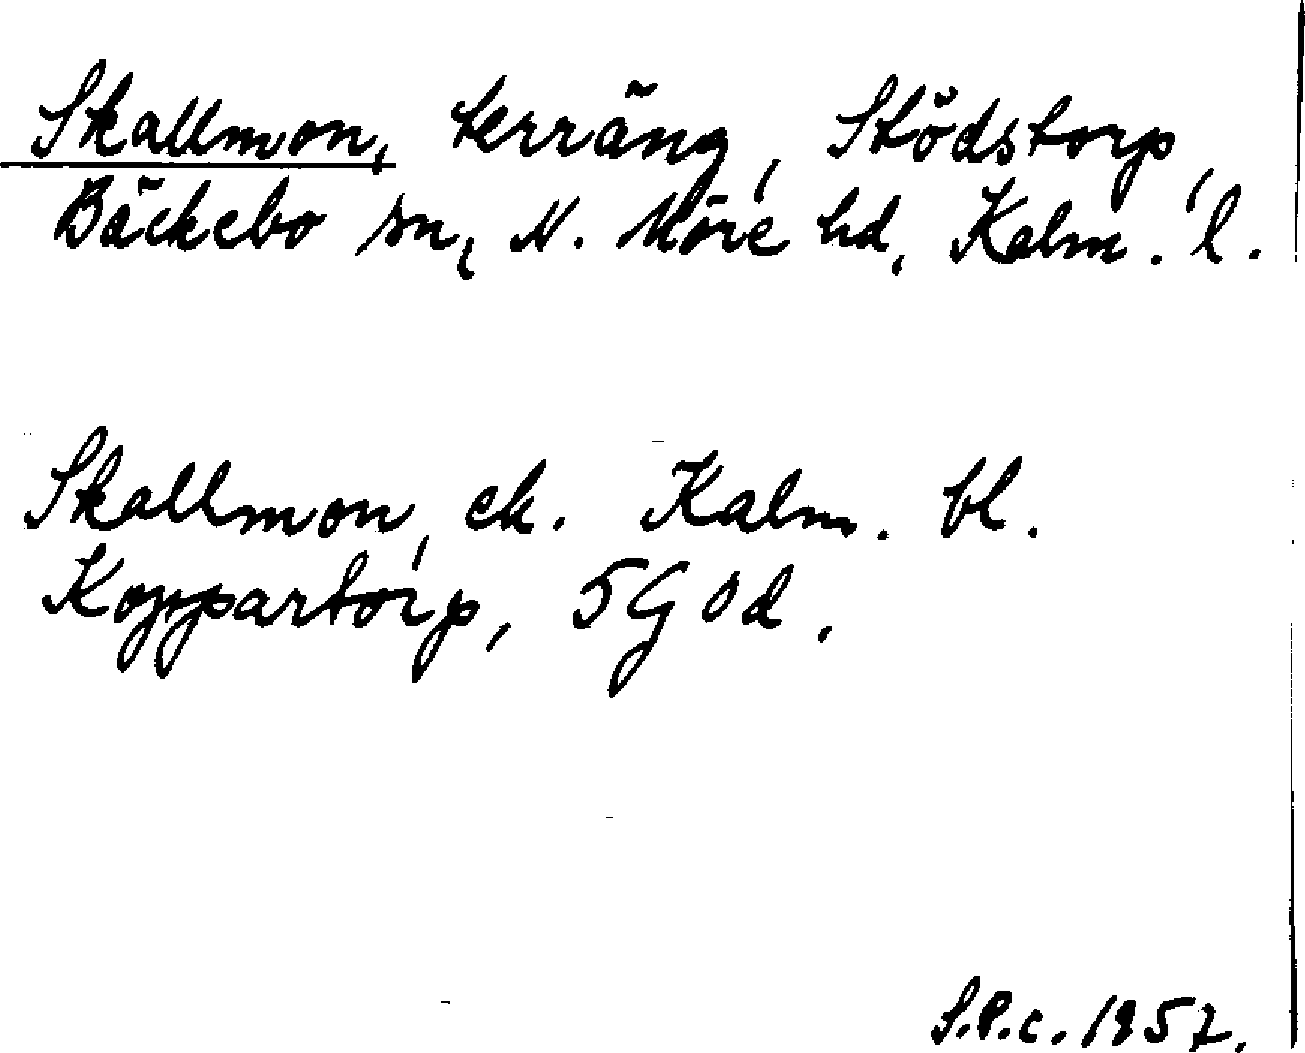 Skallmon, terräng, Stödstorp,
Bäckebo sn, N. Möre hd, Kalm. l.
Skallmon, ek. Kalm. bl.
Koppartorp, 5G0d.
S.P.c. 1957.